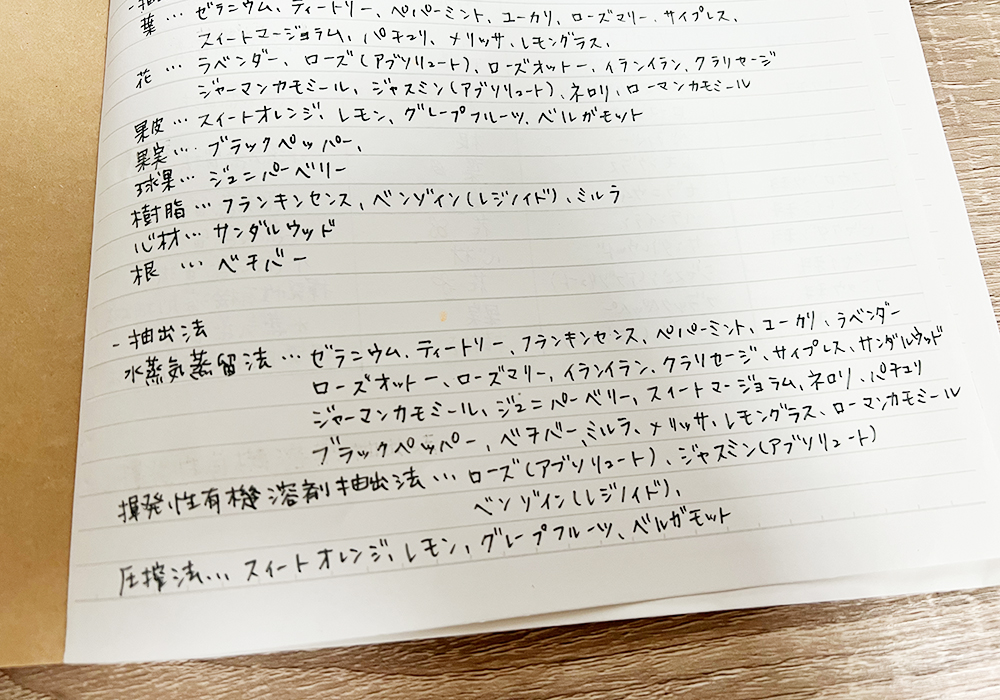 葉… ゼラニウム、ティートリー、ペパーミント、ユーカリ、ローズマリー、サイプレス、
スイートマージョラム、パチュリ、メリッサ、レモングラス、
花… ラベンダー、ローズ(アブソリュート)、ローズオットー、イランイラン、クラリセージ
ジャーマンカモミール、ジャスミン(アブソリュート)、ネロリ、ローマンカモミール
果皮… スイートオレンジ、レモン、グレープフルーツ、ベルガモット
果実… ブラックペッパー、
球果… ジュニパーベリー
樹脂… フランキンセンス、ベンゾイン(レジノイド)、ミルラ
心材… サンダルウッド
根 … ベチバー
- 抽出法
水蒸気蒸留法… ゼラニウム、ティートリー、フランキンセンス、ペパーミント、ユーカリ、ラベンダー
ローズオットー、ローズマリー、イランイラン、クラリセージ、サイプレス、サンダルウッド
ジャーマンカモミール、ジュニパーベリー、スイートマージョラム、ネロリ、パチュリ
ブラックペッパー、ベチバー、ミルラ、メリッサ、レモングラス、ローマンカモミール
揮発性有機溶剤抽出法… ローズ(アブソリュート)、ジャスミン(アブソリュート)
ベンゾイン(レジノイド)、
圧搾法… スイートオレンジ、レモン、グレープフルーツ、ベルガモット